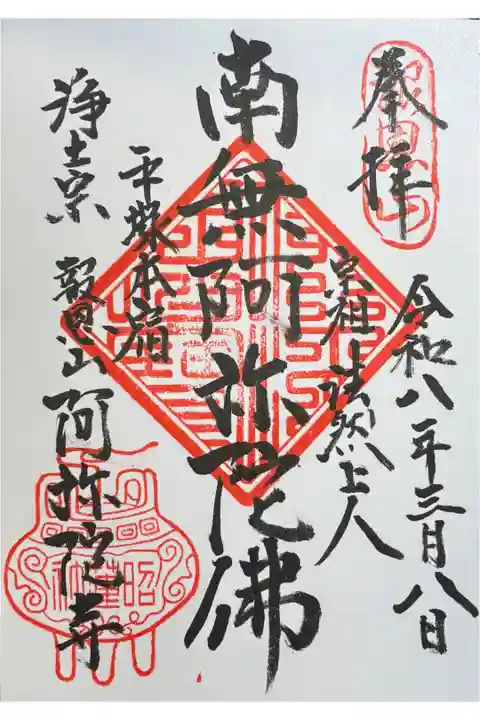 奉拝
令和八年三月八日
宗祖法然上人
南無阿弥陀佛
平塚本宿
浄土宗 報恩山 阿弥陀寺
報恩山